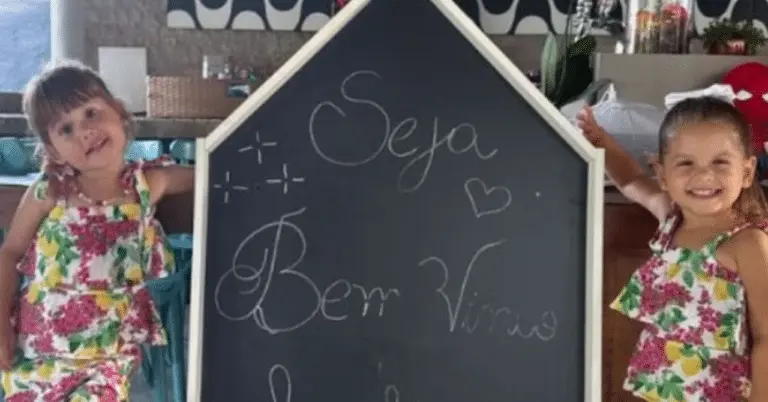 Seja
Bem Vindo